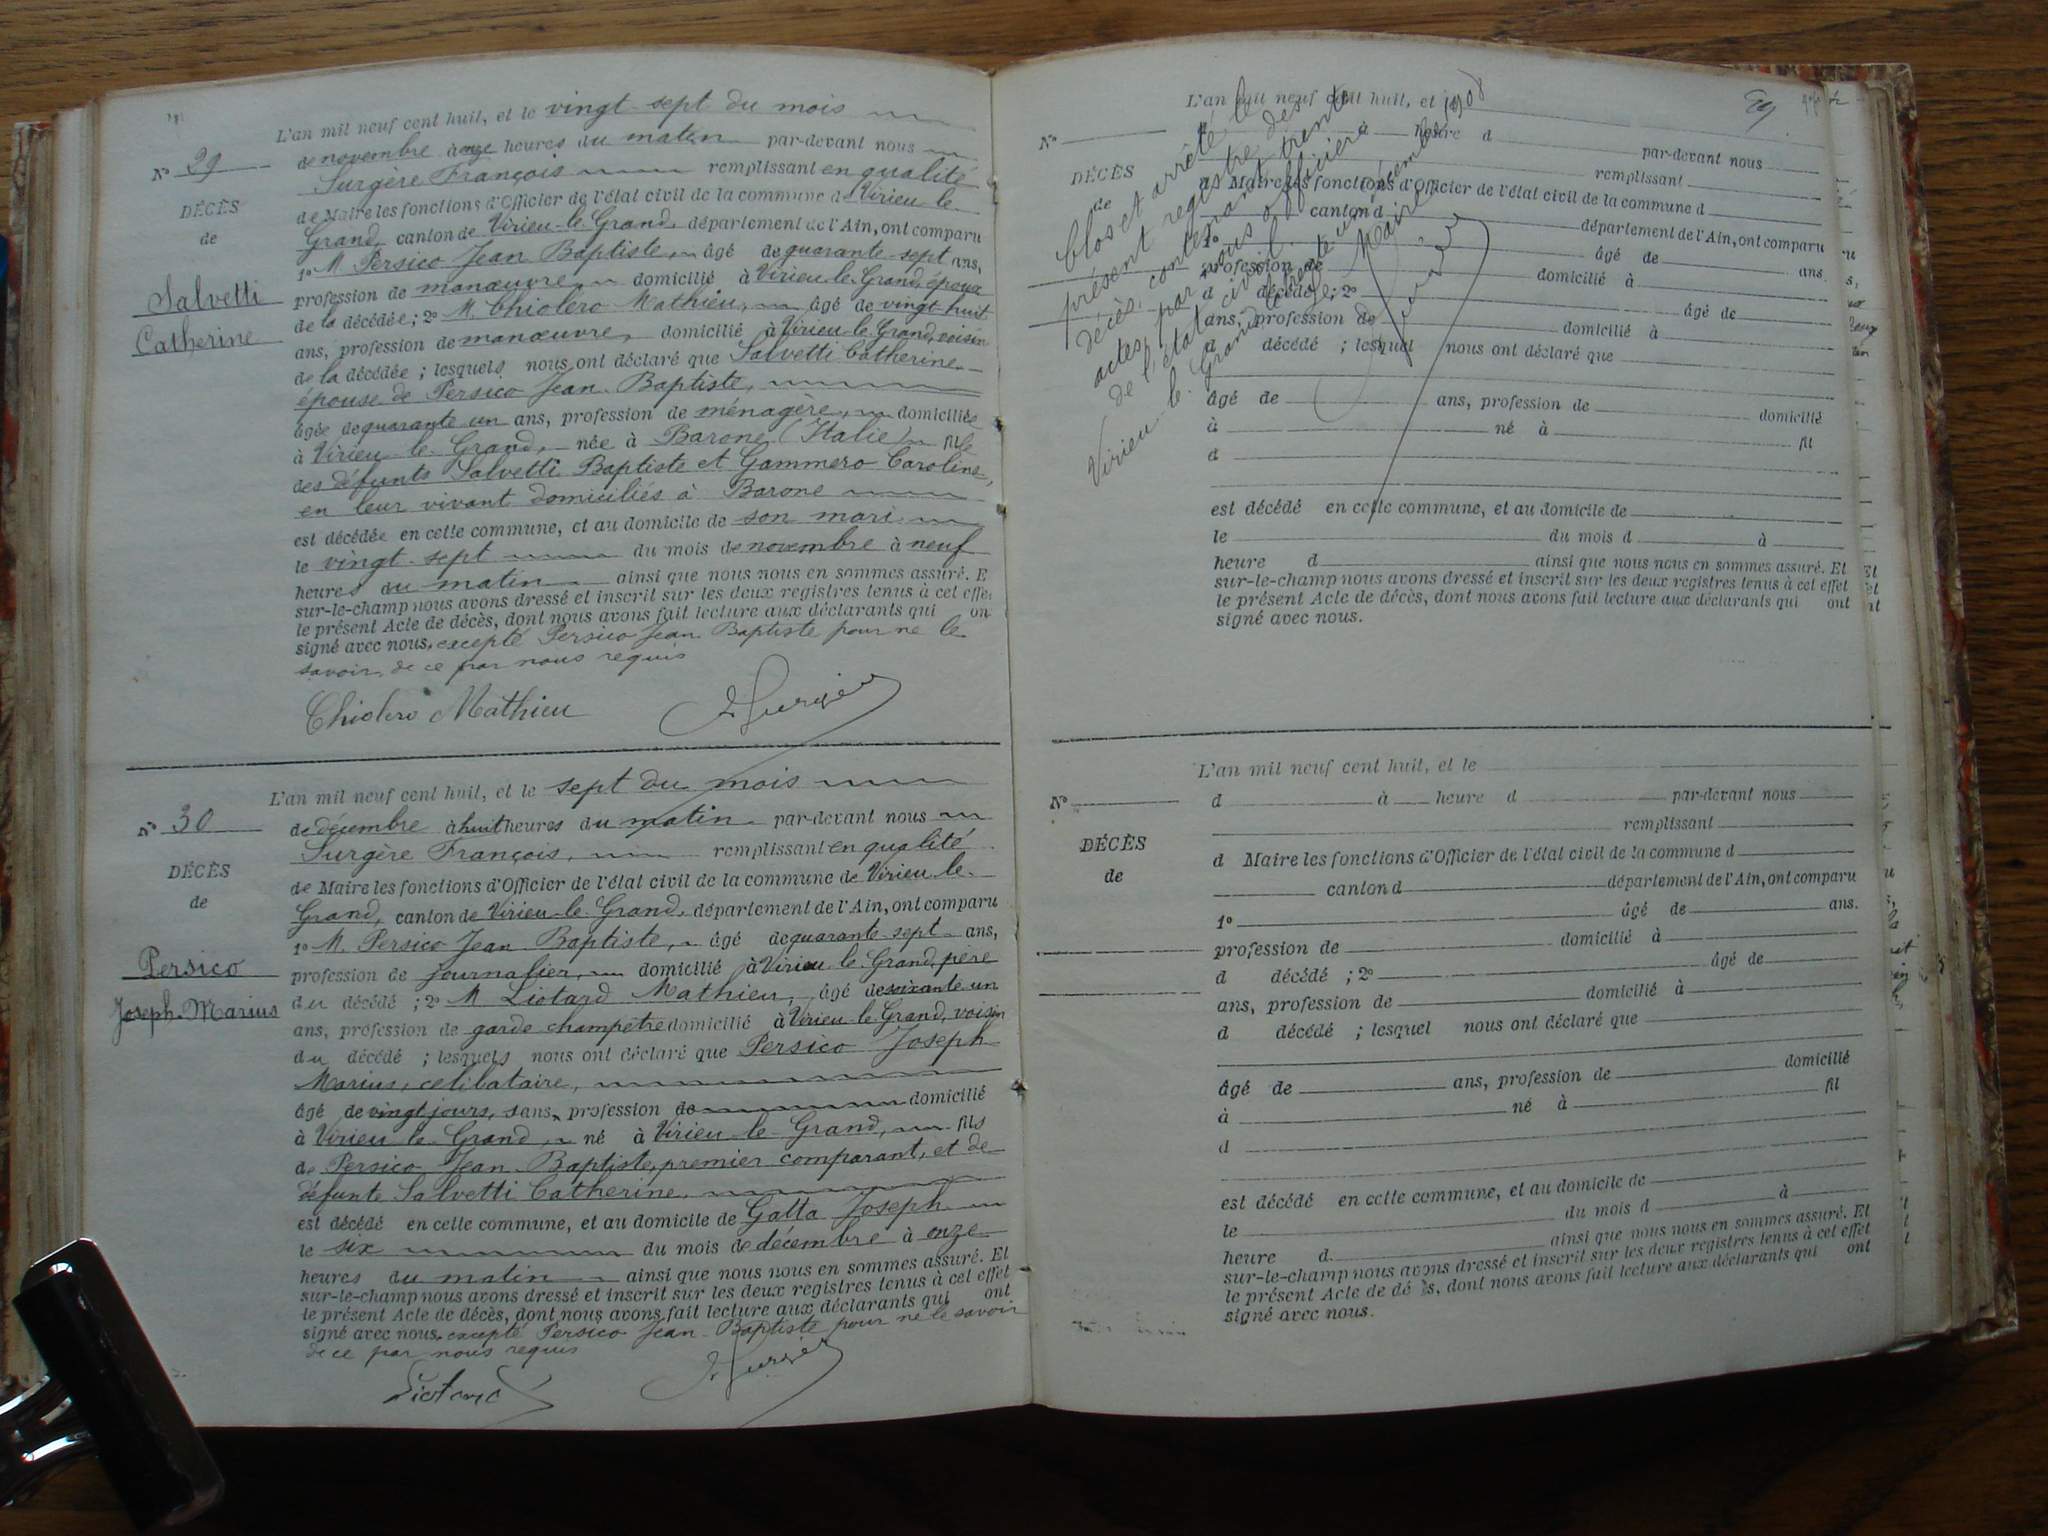 L'an mil neuf cent huit, et le vingt-sept du mois
No 29
de novembre à onze heures du matin par-devant nous
Surgère François remplissant en qualité
DÉCÈS
de Maire les fonctions d'Officier de l'état civil de la commune d Virieu-le-
de
Grand, canton de Virieu-le-Grand, département de l'Ain, ont comparu
1º M. Persico Jean Baptiste, âgé de quarante-sept ans,
Salvetti
profession de manœuvre domicilié à Virieu-le-Grand, époux
de la décédée ; 2º M. Chiolero Mathieu, âgé de vingt-huit
Catherine
ans, profession de manœuvre, domicilié à Virieu-le-Grand, voisin
de la décédée ; lesquels nous ont déclaré que Salvetti Catherine
épouse de Persico Jean-Baptiste,
âgée de quarante un ans, profession de ménagère, domiciliée
à Virieu-le-Grand, née à Barone (Italie) fille
des défunts Salvetti Baptiste et Gammero Caroline,
en leur vivant domiciliés à Barone
est décédée en cette commune, et au domicile de son mari
le vingt-sept du mois de novembre à neuf
heures du matin ainsi que nous nous en sommes assuré. E
sur-le-champ nous avons dressé et inscrit sur les deux registres tenus à cet effe
le présent Acte de décès, dont nous avons fait lecture aux déclarants qui on
signé avec nous, excepté Persico Jean-Baptiste pour ne le
savoir, de ce par nous requis
Chiolero Mathieu Surgère
L'an mil neuf cent huit, et le sept du mois
No 30
de décembre à huit heures du matin par-devant nous
Surgère François, remplissant en qualité
DÉCÈS
de Maire les fonctions d'Officier de l'état civil de la commune de Virieu-le-
de
Grand, canton de Virieu-le-Grand, département de l'Ain, ont comparu
1º M. Persico Jean-Baptiste, âgé de quarante-sept ans,
Persico
profession de journalier, domicilié à Virieu-le-Grand, père
Joseph-Marius
du décédé ; 2º M Liotard Mathieu, âgé de soixante un
ans, profession de garde champêtre domicilié à Virieu-le-Grand, voisin
du décédé ; lesquels nous ont déclaré que Persico Joseph
Marius, célibataire,
âgé de vingt jours, sans profession de domicilié
à Virieu-le-Grand, né à Virieu-le-Grand, fils
de Persico Jean-Baptiste, premier comparant, et de
défunte Salvetti Catherine,
est décédé en cette commune, et au domicile de Galta Joseph
le six du mois de décembre à onze
heures du matin ainsi que nous nous en sommes assuré. Et
sur-le-champ nous avons dressé et inscrit sur les deux registres tenus à cet effet
le présent Acte de décès, dont nous avons fait lecture aux déclarants qui ont
signé avec nous, excepté Persico Jean-Baptiste pour ne le savoir
de ce par nous requis
Liotard Surgère
29
Clos et arrêté le
présent registre des
décès, contenant trente
actes, par nous officier
de l'état civil.
Virieu-le-Grand, le trente un décembre 1908
Maire
L'an mil neuf cent huit, et
No
à heure d par-devant nous
DÉCÈS
remplissant
de
d Maire les fonctions d'Officier de l'état civil de la commune d
canton d département de l'Ain, ont comparu
1º âgé de ans.
profession de domicilié à
d décédé ; 2º âgé de
ans, profession de domicilié à
d décédé ; lesquel nous ont déclaré que
âgé de ans, profession de domicilié
à né à fil
d
est décédé en cette commune, et au domicile de
le du mois d à
heure d ainsi que nous nous en sommes assuré. Et
sur-le-champ nous avons dressé et inscrit sur les deux registres tenus à cet effet
le présent Acte de décès, dont nous avons fait lecture aux déclarants qui ont
signé avec nous.
L'an mil neuf cent huit, et le
No
d à heure d par-devant nous
remplissant
DÉCÈS
d Maire les fonctions d'Officier de l'état civil de la commune d
de
canton d département de l'Ain, ont comparu
1º âgé de ans.
profession de domicilié à
d décédé ; 2º âgé de
ans, profession de domicilié à
d décédé ; lesquel nous ont déclaré que
âgé de ans, profession de domicilié
à né à fil
d
est décédé en cette commune, et au domicile de
le du mois d à
heure d ainsi que nous nous en sommes assuré. Et
sur-le-champ nous avons dressé et inscrit sur les deux registres tenus à cet effet
le présent Acte de dé s, dont nous avons fait lecture aux déclarants qui ont
signé avec nous.